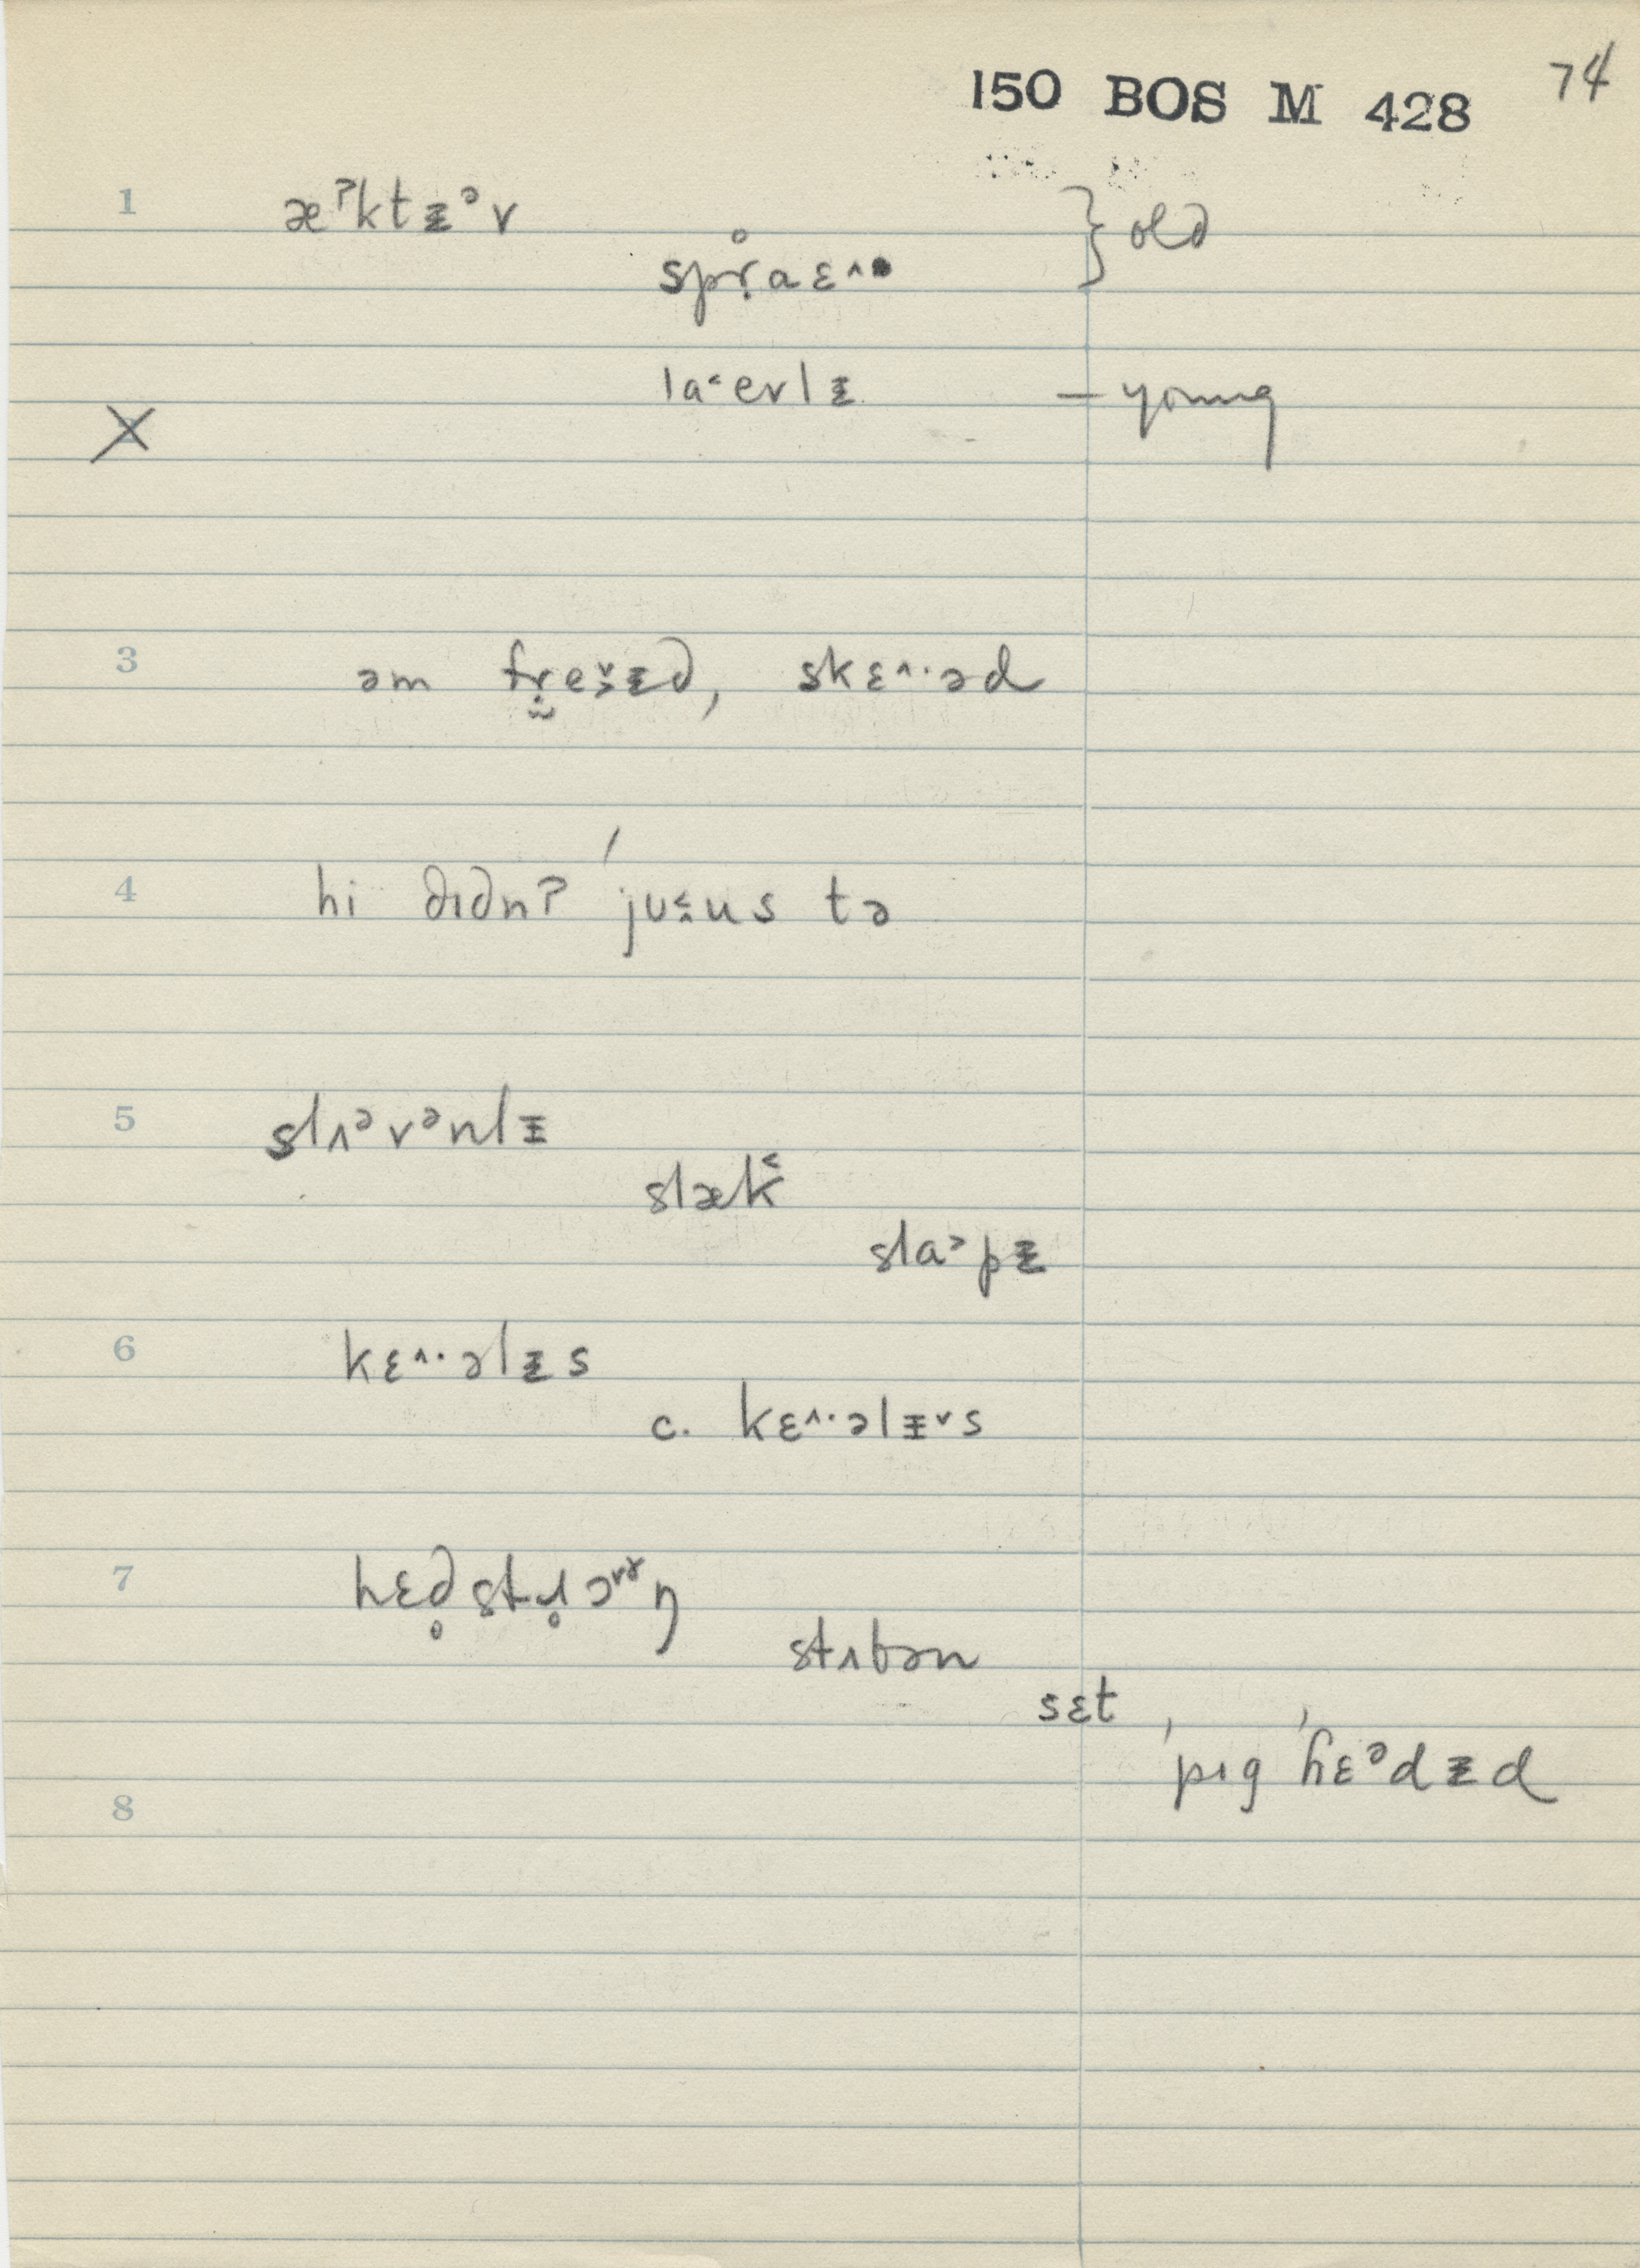 150 BOS M 428 74
1 æˀktᵻᵊv } old
spr̥̣aɛ^
la˂evlᵻ — young
2
3 əm frẹe˅ᵻd, skɛ^·əd
4 hi dɪdnʔ ˈjʊ˂us tə
5 slʌᵊvᵊnlᵻ
slæk˂
sla˃pᵻ
6 kɛ^·əlᵻs
c. kɛ^·əlᵻ˅s
7 hɛd̥stɹ̥ɔ˅ɤŋ
stʌbən
sɛt
ˈpɪg ˈhɛᵊdᵻd
8